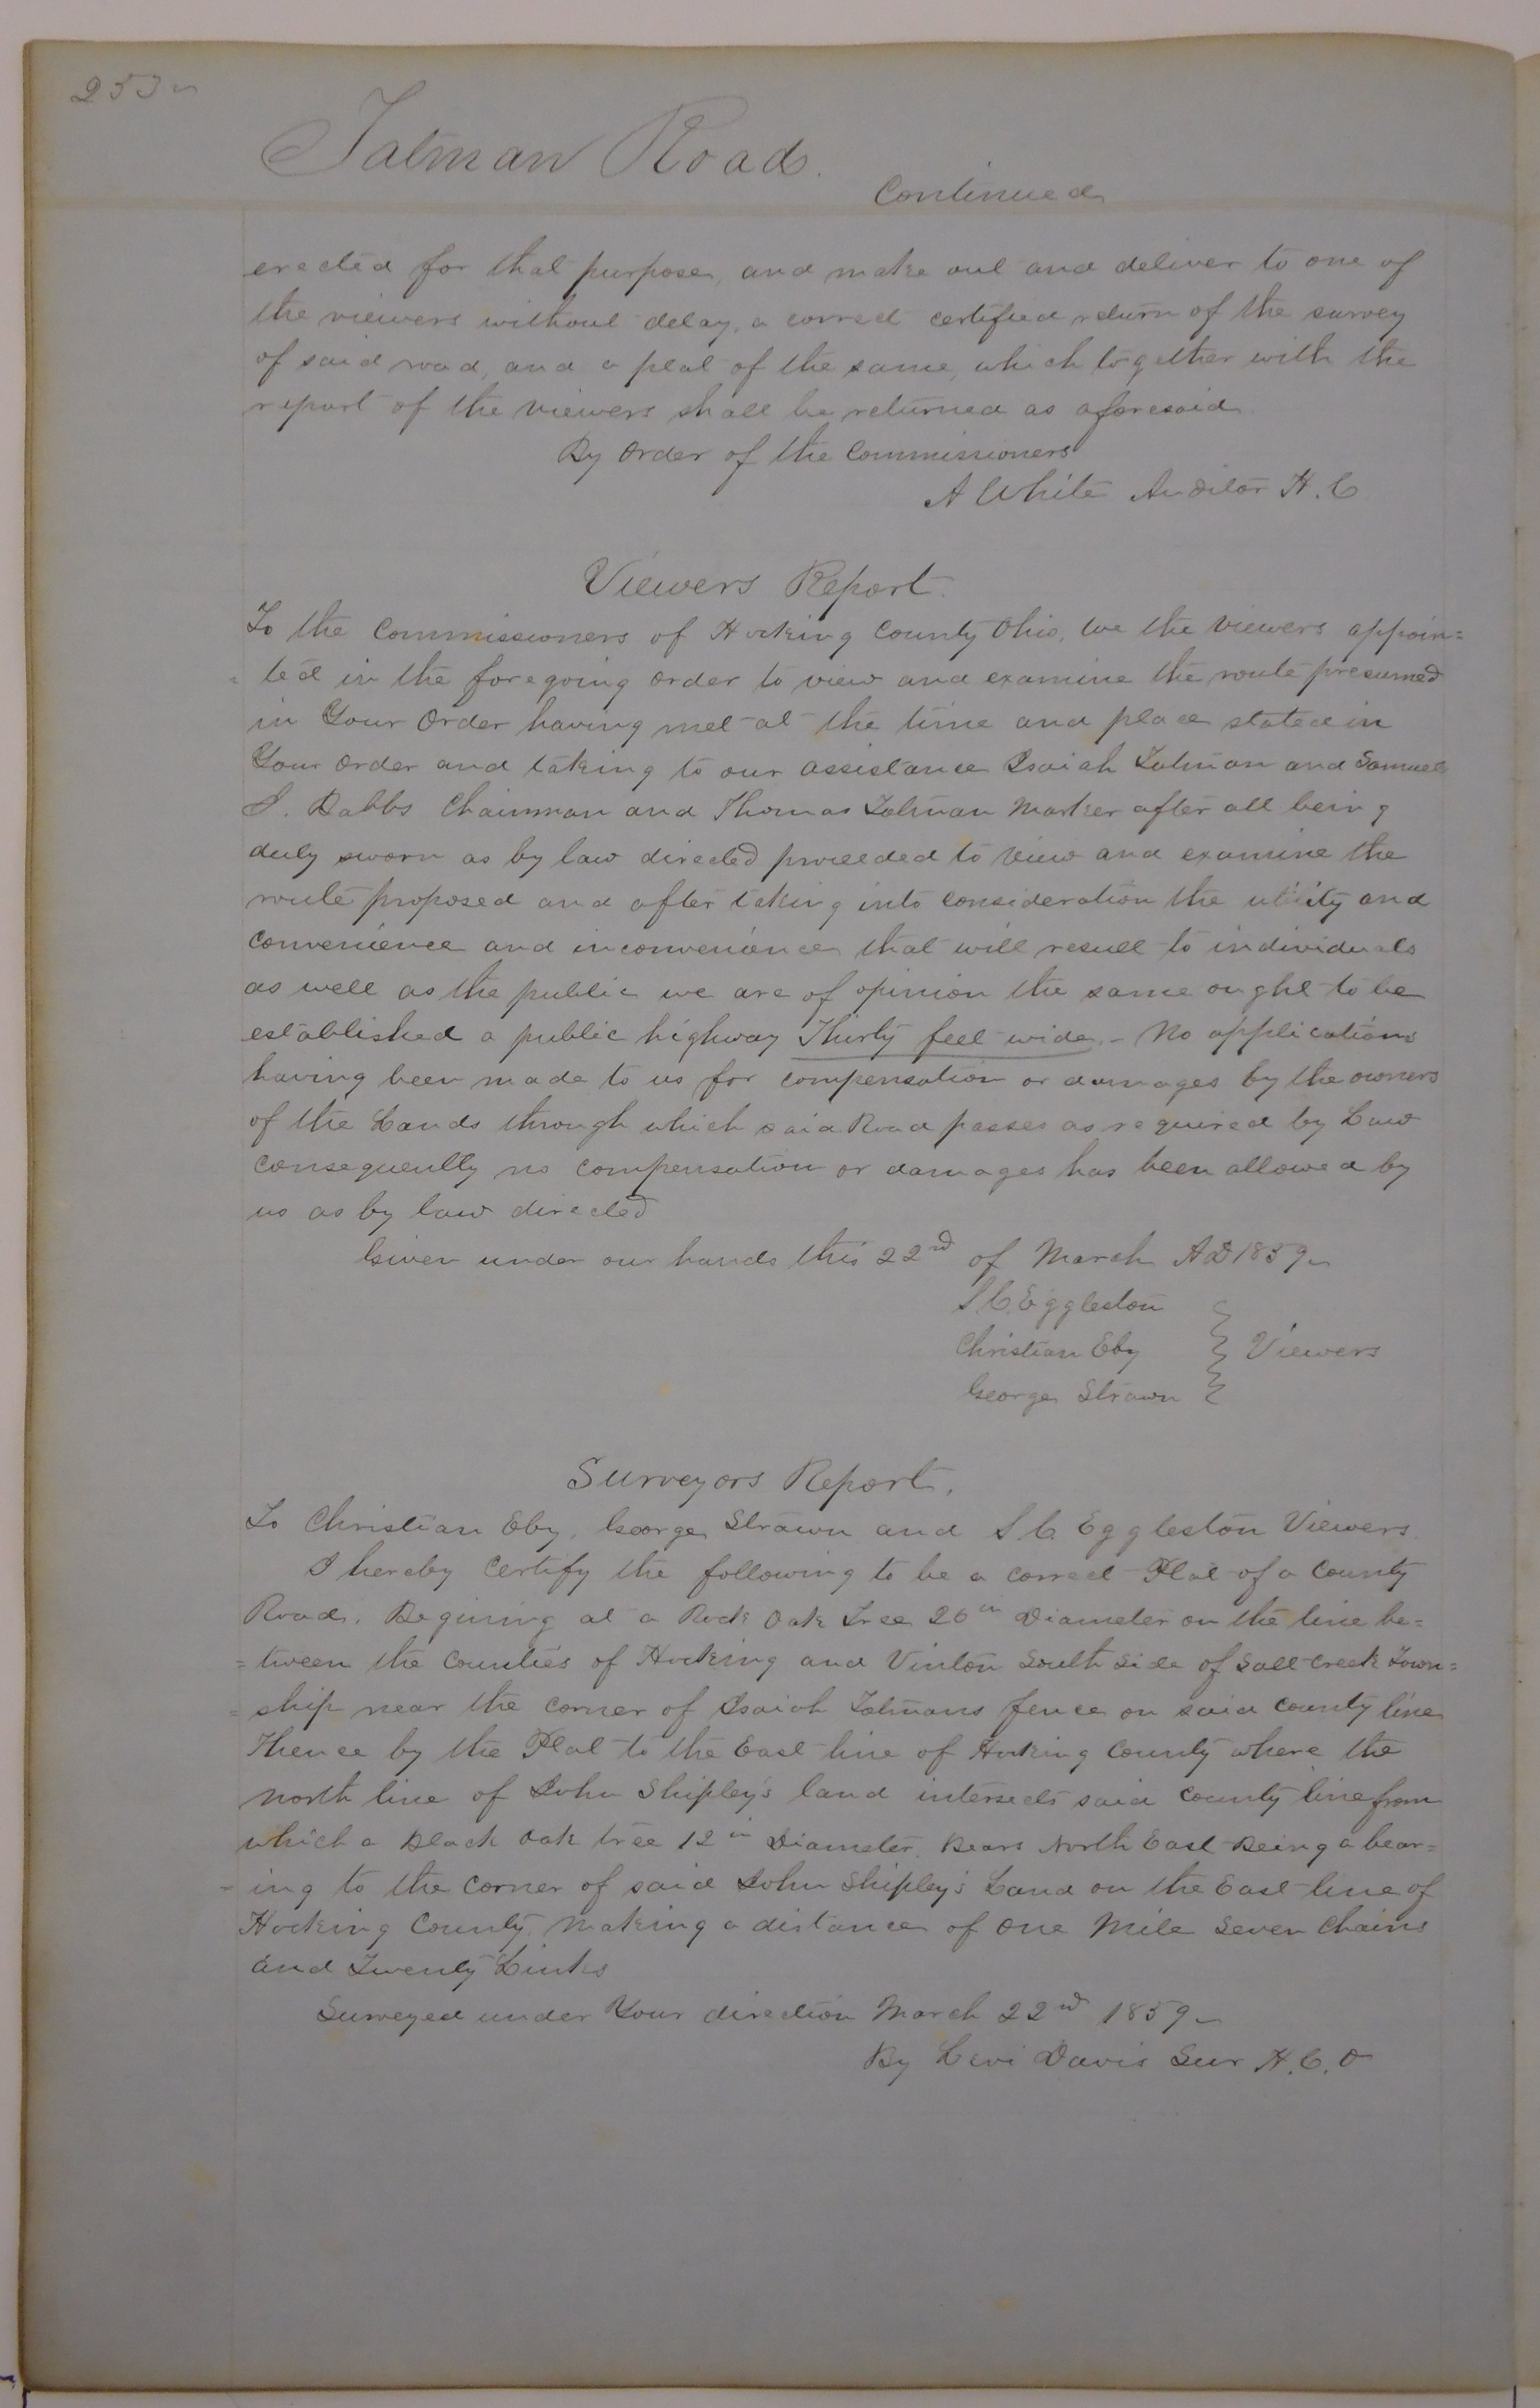 253
Tatman Road.
Continued
erected for that purpose, and make out and deliver to one of
the viewers without delay, a correct certified return of the survey
of said road, and a plat of the same, which together with the
report of the viewers shall be returned as aforesaid.
By Order of the Commissioners
A White Auditor H. C
Viewers Report.
To the Commissioners of Hocking County Ohio, We the Viewers appoin=
=ted in the foregoing order to view and examine the route presumed
in Your Order having met at the time and place stated in
Your order and taking to our assistance Isaiah Tatman and Samuel
S. Dabbs Chainman and Thomas Tatman Marker after all being
duly sworn as by law directed proceeded to view and examine the
route proposed and after taking into consideration the utility and
convenience and inconvenience that will result to individuals
as well as the public we are of opinion the same ought to be
established a public highway Thirty feet wide. - No applications
having been made to us for compensation or damages by the owners
of the Lands through which said Road passes as required by Law
consequently no compensation or damages has been allowed by
us as by law directed
Given under our hands this 22nd of March AD 1859
S C Eggleston
Christian Eby } Viewers
George Strawn
Surveyors Report.
To Christian Eby, George Strawn and S C Eggleston Viewers.
I hereby Certify the following to be a correct Plat of a County
Road. Begining at a Rock Oak Tree 26 in Diameter on the line be=
=tween the Counties of Hocking and Vinton South Side of Salt Creek Town=
=ship near the corner of Isaiah Tatmans fence on said County line
Thence by the Plat to the East line of Hocking County where the
North line of John Shipley's land intersects said County line from
which a Black Oak tree 12 in Diameter. Bears North East Being a bear=
-ing to the Corner of said John Shipley's Land on the East line of
Hocking County. Making a distance of One Mile Seven Chains
and Twenty Links
Surveyed under Your direction March 22nd 1859
By Levi Davis Sur H. C. O